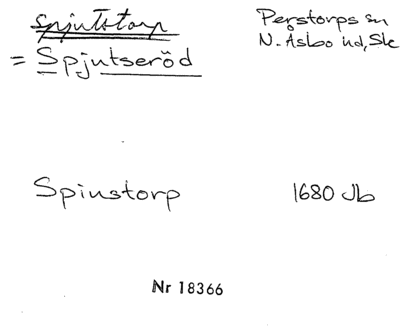 Spjutstorp Perstorps sn
= Spjutseröd N. Åsbo hd, Sk
Spiustorp 1680 Jb
Nr 18366